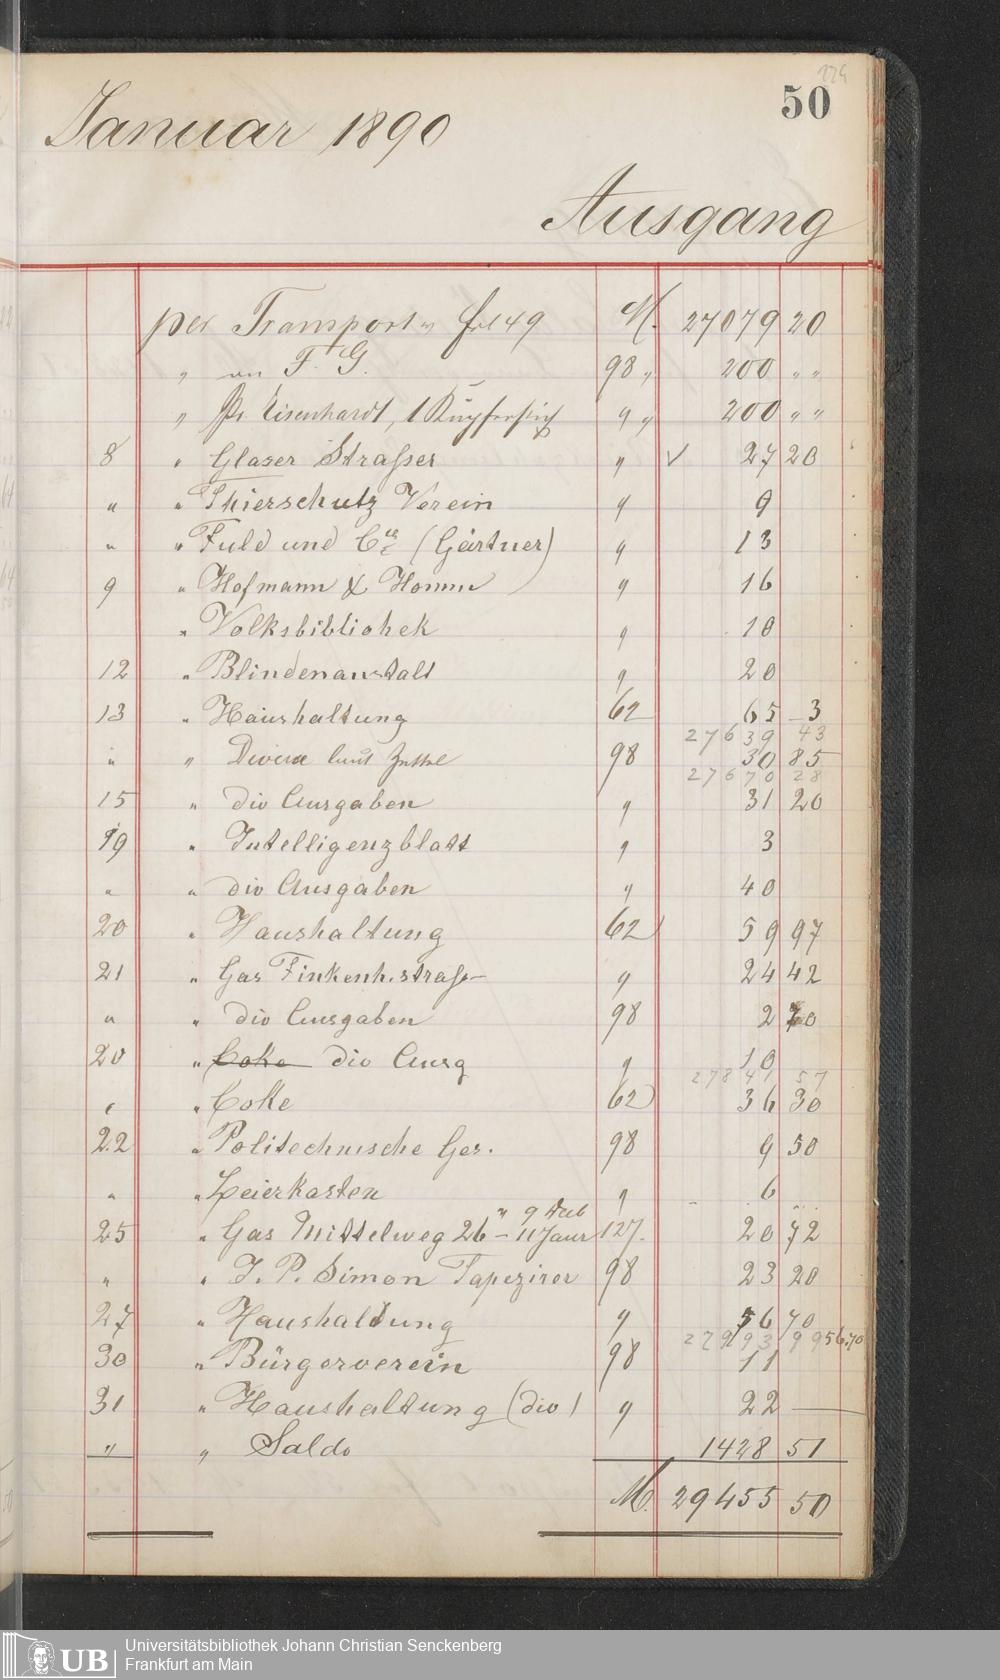 50
Januar 1890
Ausgang
per Transport v fol 49 M. 27079 20
" an F. G. 98 " 200 " "
" Pr. Eisenhardt, 1 Kupferstich " " 200 " "
8 " Glaser Straßer " ✓ 27 20
" " Thierschutz Verein " 9
" " Fuld und Cie (Gärtner) " 13
9 " Hofmann & Homm " 16
" Volksbibliohek " 10
12 " Blindenanstalt " 20
13 " Haushaltung 62 65 3
27639 43
" " Diverse laut 98 30 85
27670 28
15 " div Ausgaben " 31 20
19 " Intelligenzblatt " 3
" " div Ausgaben " 40
20 " Haushaltung 62 59 97
21 " Gas Finkenh.straße " 24 42
" " div Ausgaben 98 2 70
20 " Coke div Ausg " 10
27841 57
" " Coke 62 36 30
22 " Politechnische Ges. 98 9 50
" " Leierkasten " 6
25 " Gas Mittelweg 26 - 11 Janr 127. 20 72
" " J. P. Simon Tapezirer 98 23 20
27 " Haushaltung " 56 70
27993 99 56.70
30 " Bürgerverein 98 11
31 " Haushaltung (div) " 22 —
" " Saldo 1428 51
M. 29455 50
UB Universitätsbibliothek Johann Christian Senckenberg
Frankfurt am Main